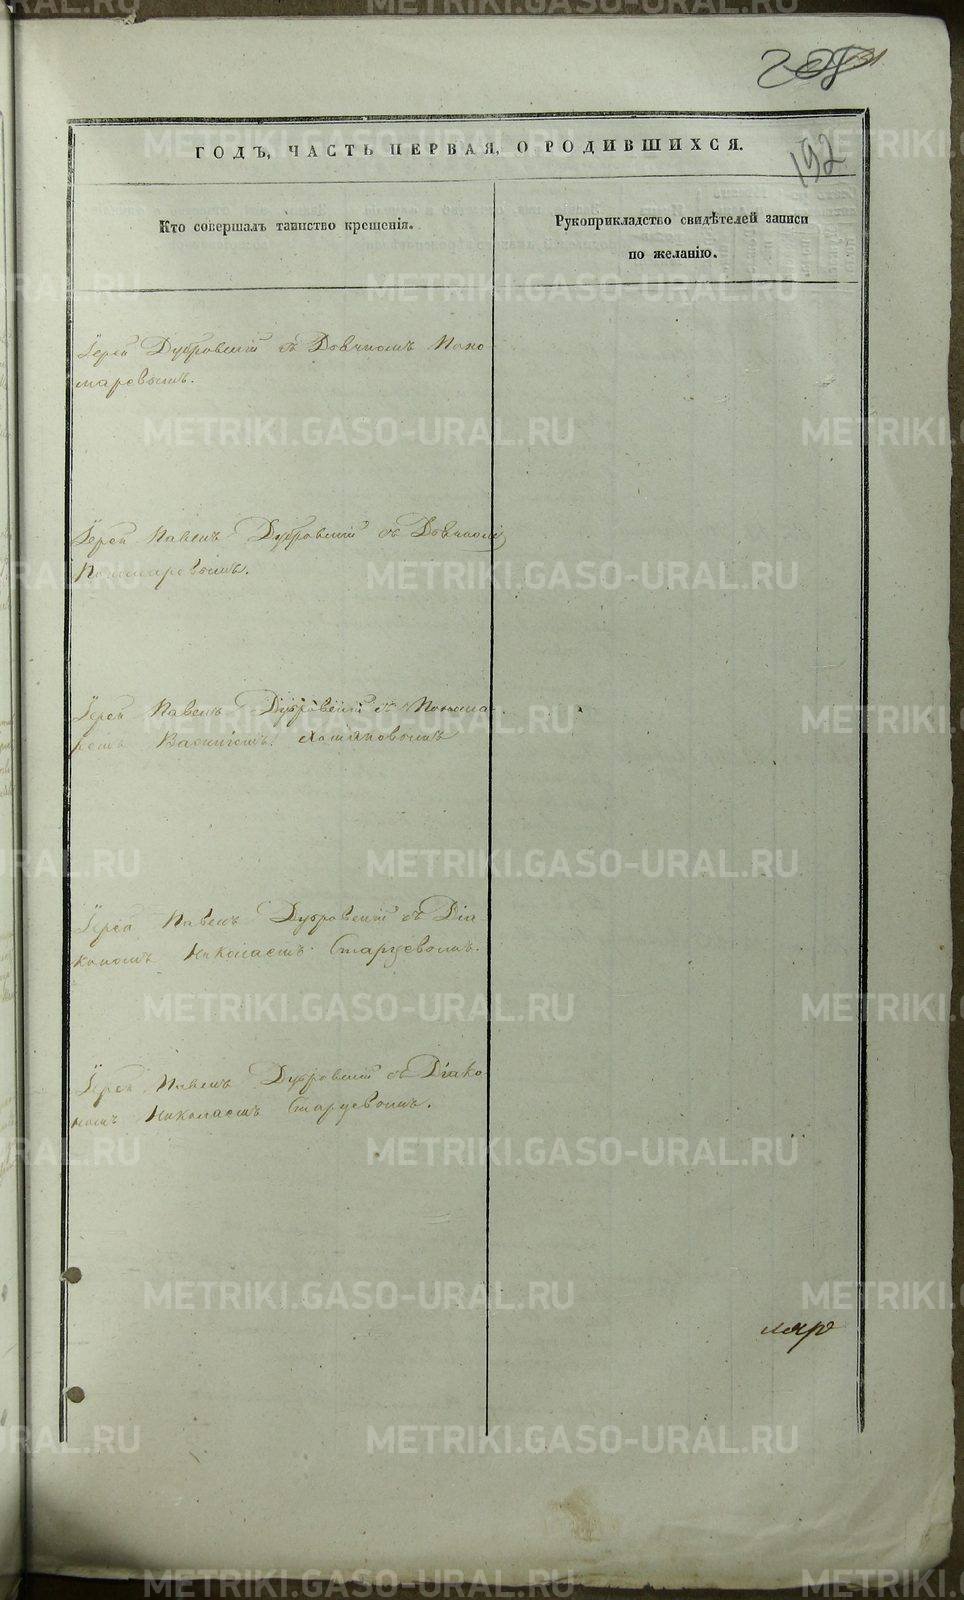 192
ГОДЪ, ЧАСТЬ ПЕРВАЯ, О РОДИВШИХСЯ.
Кто совершалъ таинство крещенія.
Рукоприкладство свидѣтелей записи
по желанію.
Іерей Дубровскій съ Дьячкомъ Поно
маревымъ.
Іерей Павелъ Дубровскій съ Дьячкомъ
Пономаревымъ.
Іерей Павелъ Дубровскій съ Понома
ремъ Василіемъ Хомяковымъ
Іерей Павелъ Дубровскій съ Діа
кономъ Николаемъ Старцевымъ.
Іерей Павелъ Дубровскій съ Діако
номъ Николаемъ Старцевымъ.
METRIKI.GASO-URAL.RU